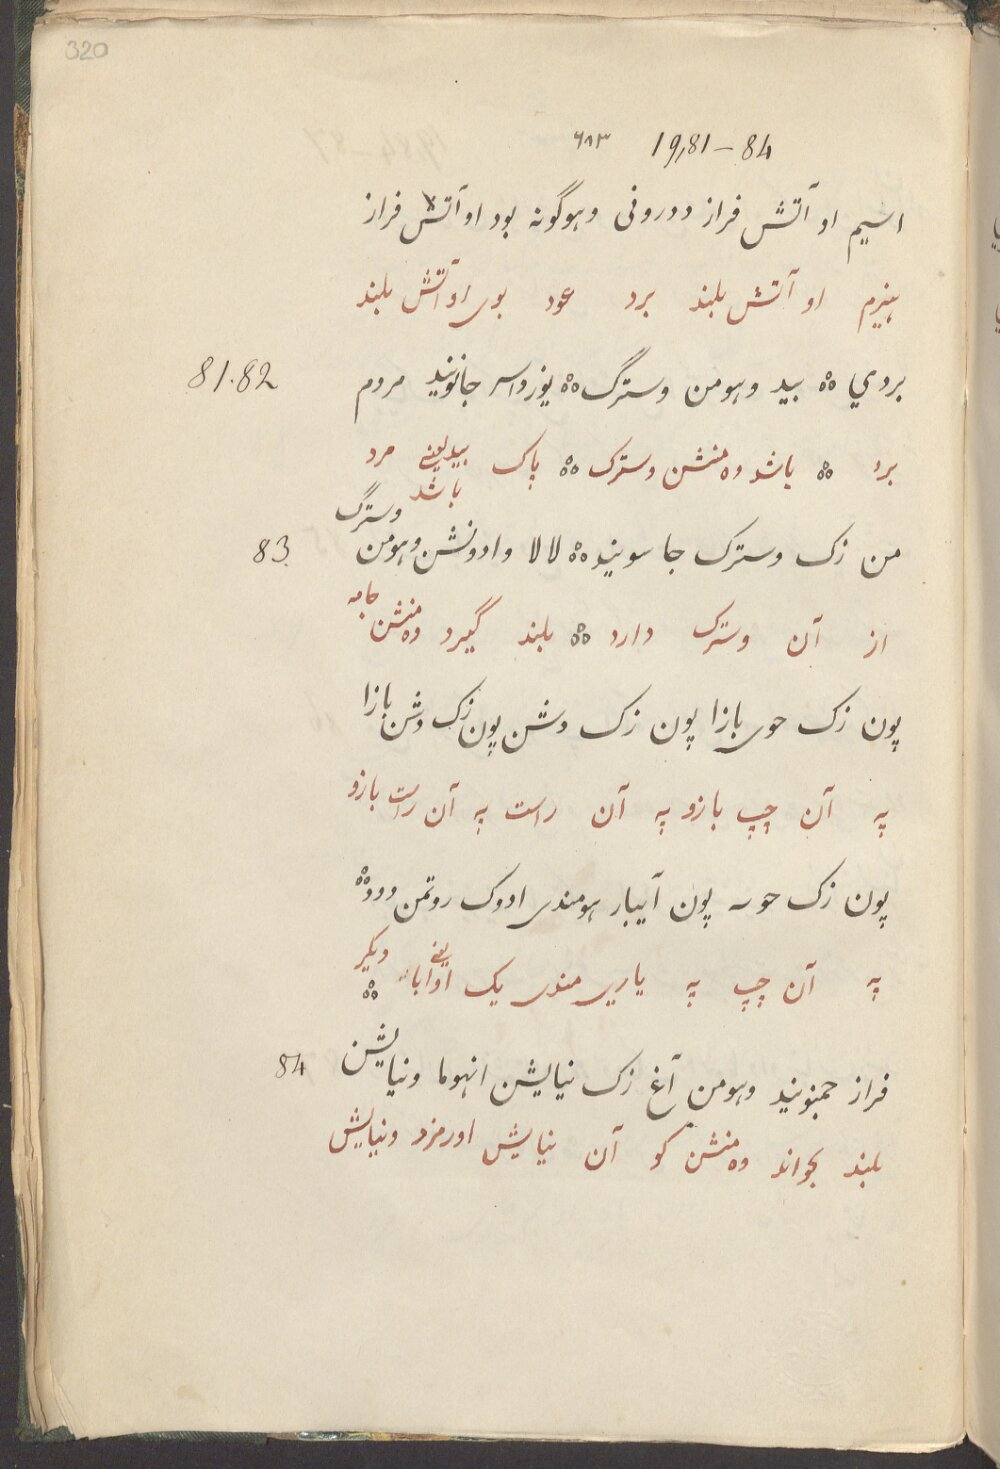 320
19,81-84 ۶۸۳
اسیم او آتش فراز ددرونی وهوگونه بود او آتش فراز
هیزم او آتش بلند برد عود بوی او آتش بلند
بروي ஃ بید وهومن وسترگ ஃ یوزداسر جانونید مردم 81.82
برد ஃ باشد وه منشن وسترک ஃ پاک بید یعنے مرد
باشد
وسترگ
من زک وسترک جاسونید ஃ لالا وادونشن وهومن 83
جامه
از آن وسترک دارد ஃ بلند گیرد وه منشن
پون زک حوی بازا پون زک دشن پون زک دشن بازا
په آن چپ بازو په آن راست په آن راست بازو
پون زک حوے پون آیبار هومندی ادوک روتمن ودو ஃ
په آن چپ په یاری مندی یک اوابا یعنے دیگر ஃ
فراز حمنونید وهومن آغ زک نیایشن انهوما ونیایشن 84
بلند بخواند وه منشن کو آن نیایش اورمزد ونیایش